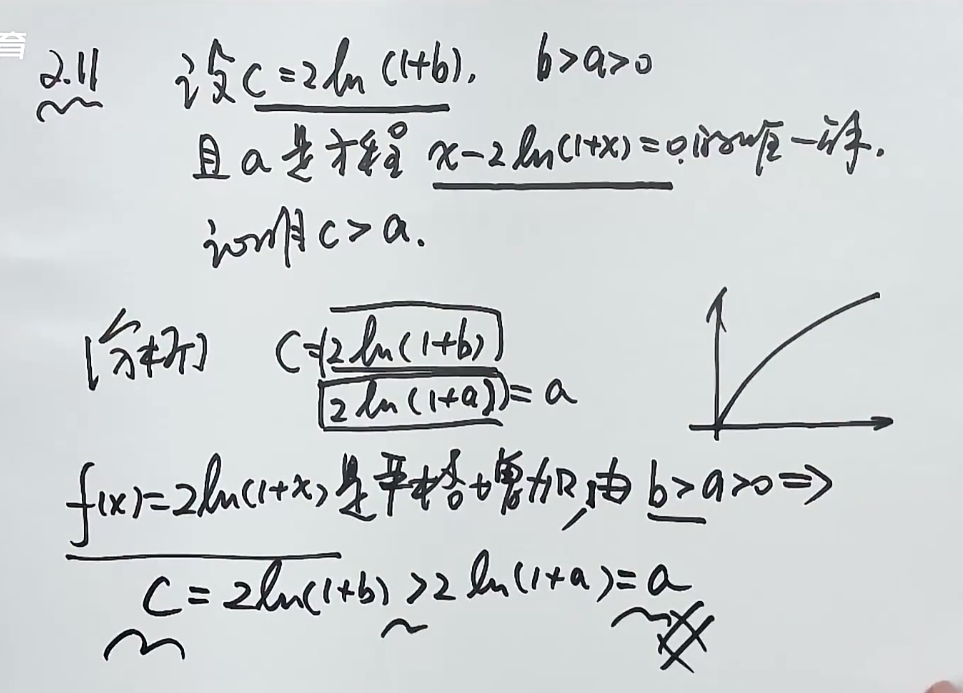 育
2.11 设 c=2ln(1+b), b>a>0
且 a 是方程 x-2ln(1+x)=0 的唯一
证明 c>a.
[分析] c=2ln(1+b)
2ln(1+a)=a
f(x)=2ln(1+x)是严格单增加的, 由 b>a>0⇒
c=2ln(1+b)>2ln(1+a)=a